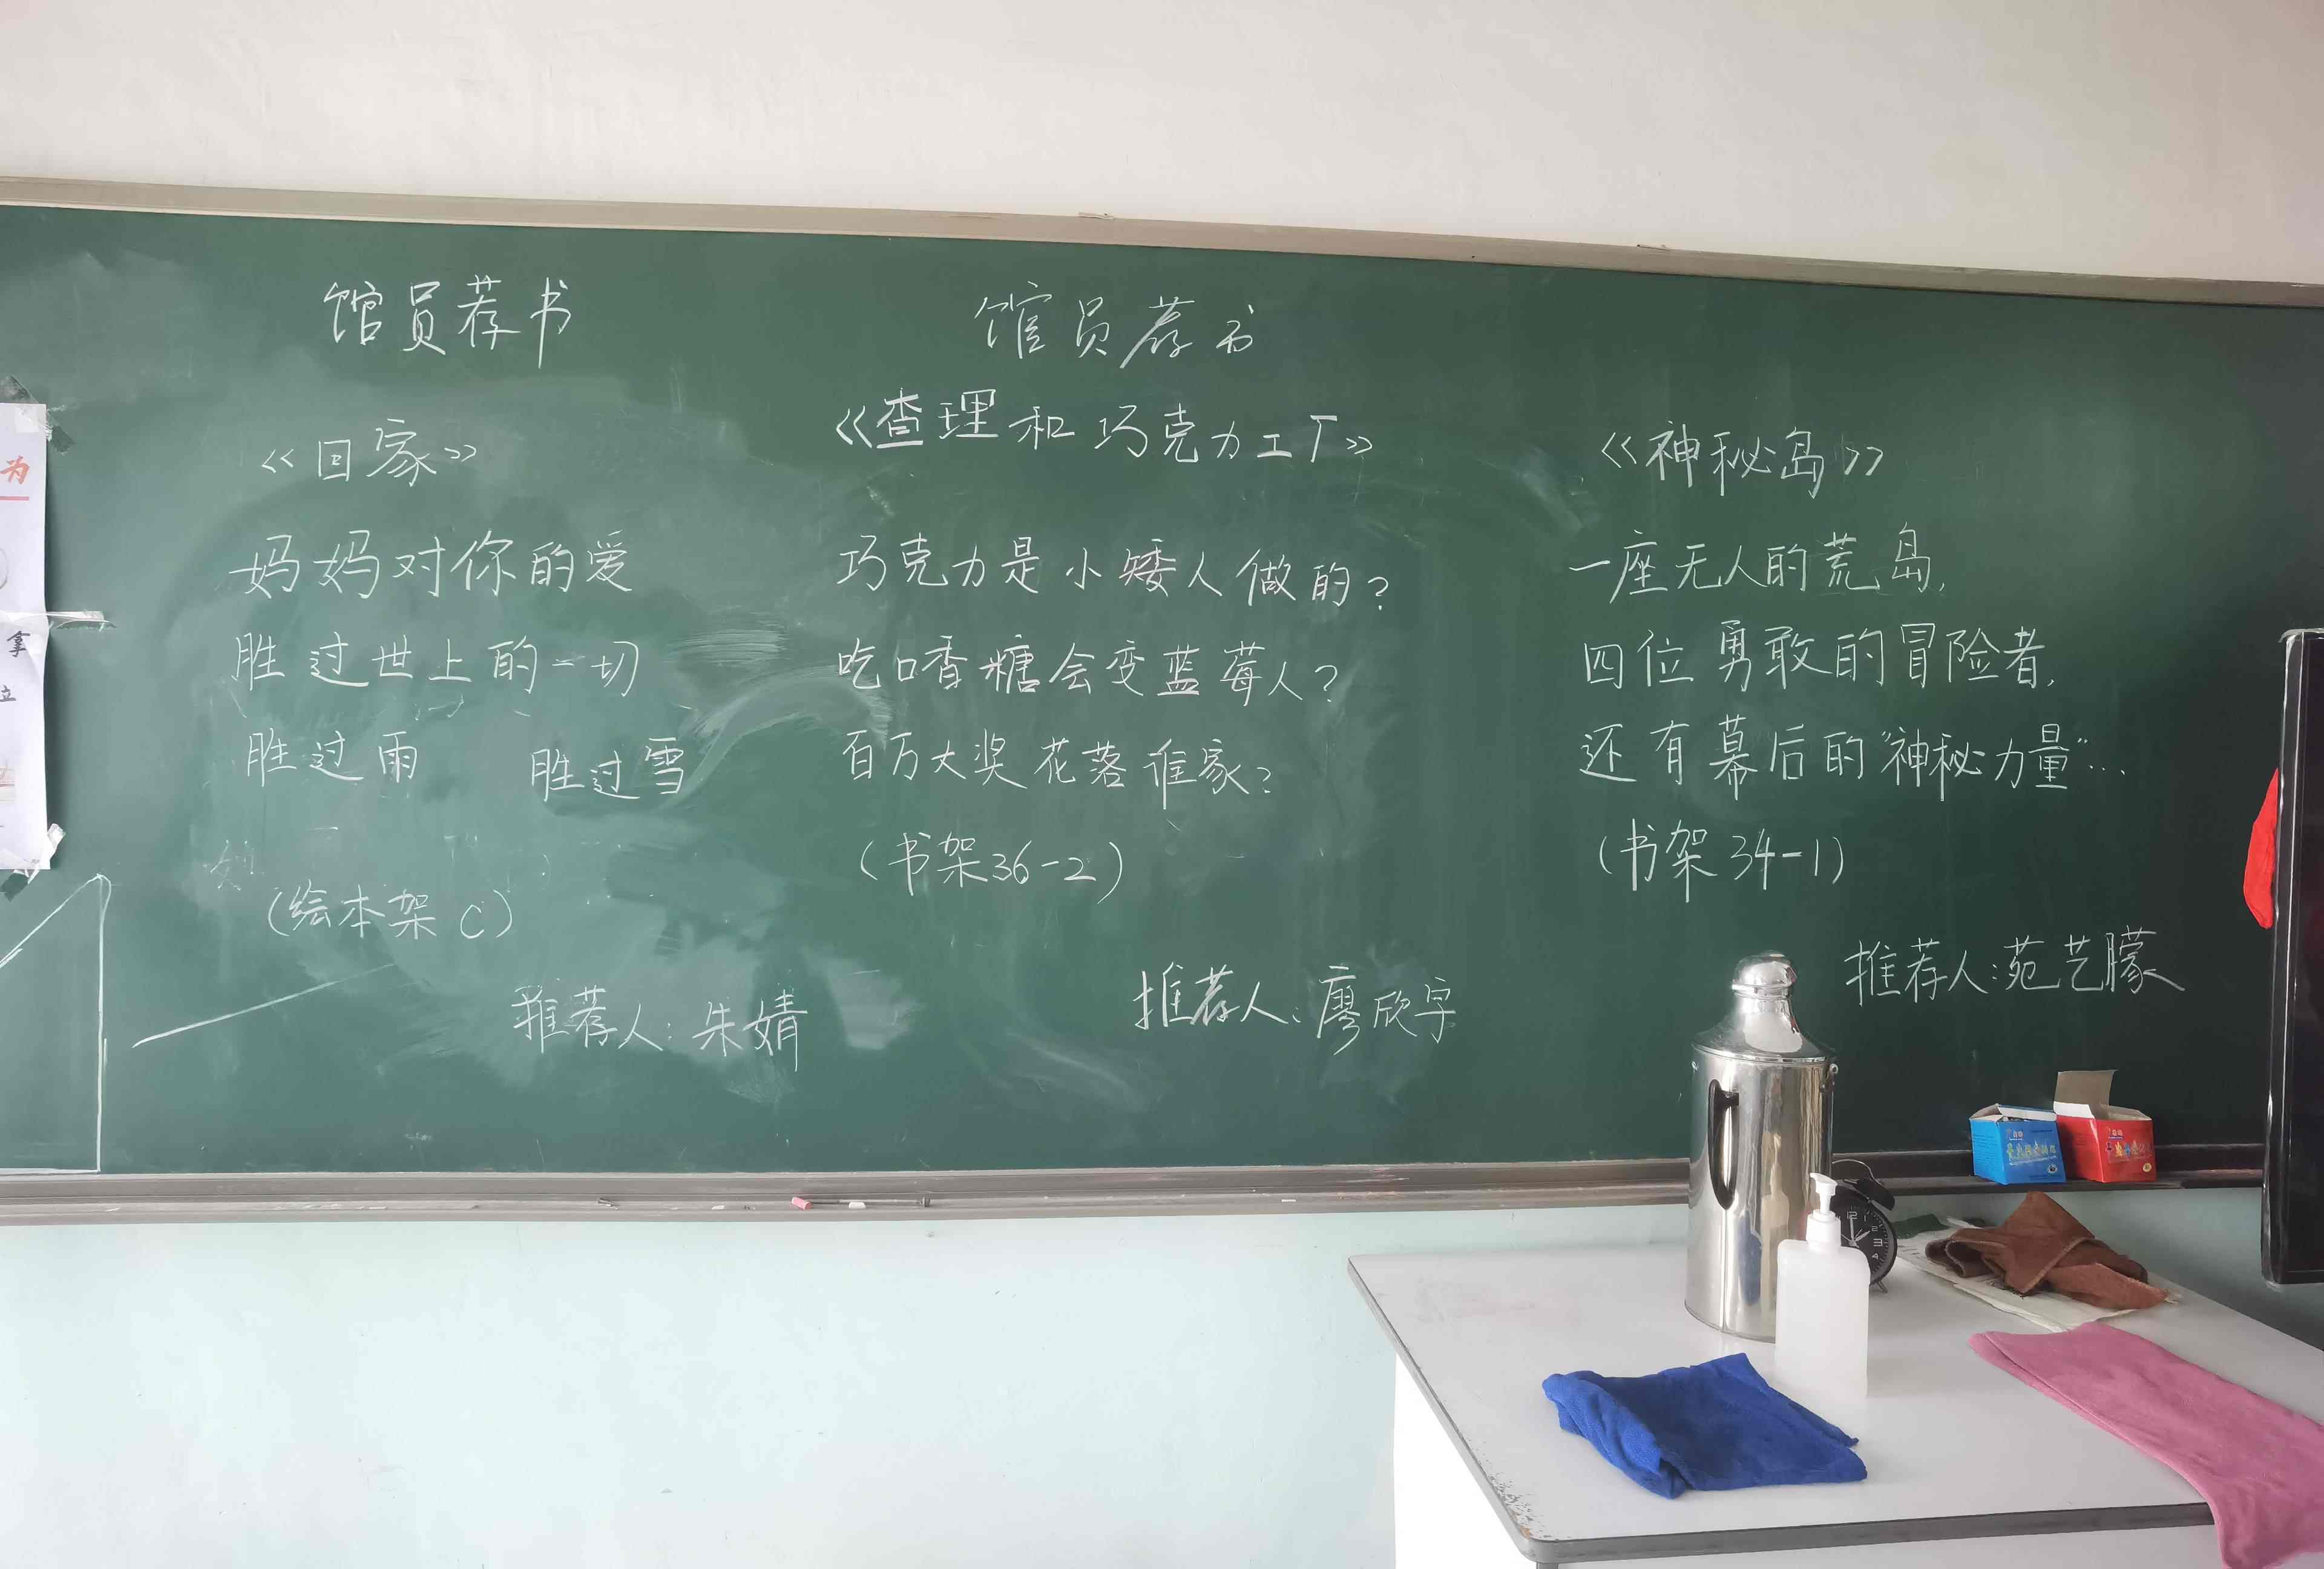 馆员荐书
《回家》
妈妈对你的爱
胜过世上的一切
胜过雨 胜过雪
(绘本架C)
推荐人:朱婧
馆员荐书
《查理和巧克力工厂》
巧克力是小矮人做的?
吃口香糖会变蓝莓人?
百万大奖花落谁家?
(书架36-2)
推荐人:廖欣宇
《神秘岛》
一座无人的荒岛,
四位勇敢的冒险者,
还有幕后的“神秘力量”…
(书架34-1)
推荐人:苑艺朦
为
拿
立
12
1
2
3
4